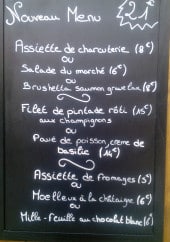 Nouveau Menu 21€
Assiette de charcuterie (8€)
ou
Salade du marché (6€)
ou
Brushetta saumon gravelax (8€)
Filet de pintade rôti (15€)
aux champignons
ou
Pavé de poisson, crème de
basilic (14€)
Assiette de fromages (5€)
ou
Moelleux à la châtaigne (6€)
ou
Mille-feuille au chocolat blanc (6€)